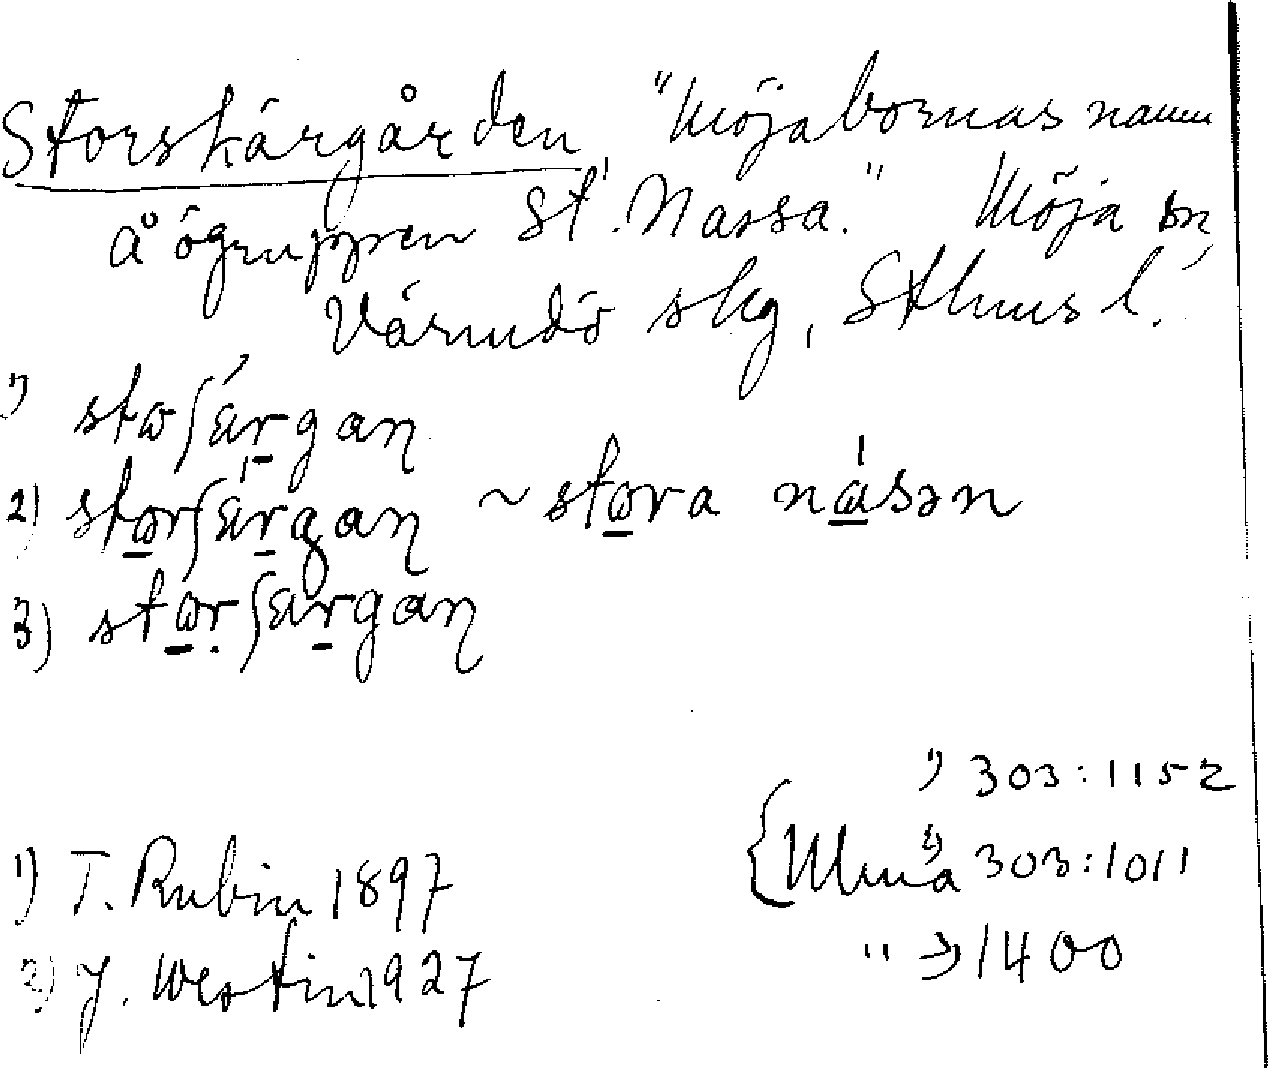 Storskärgården, "Möjabornas namn
å ögruppen St. Nassa." Möja sn,
Värmdö skg, Sthms l.
1) stoʃärgaɳ
2) storʃärgaɳ ~ stora nasən
3) storʃärgaɳ
1) 303:1152
1) T. Rubin 1897 2) 303:1011
2) J. Westin 1927 " 3) 1400